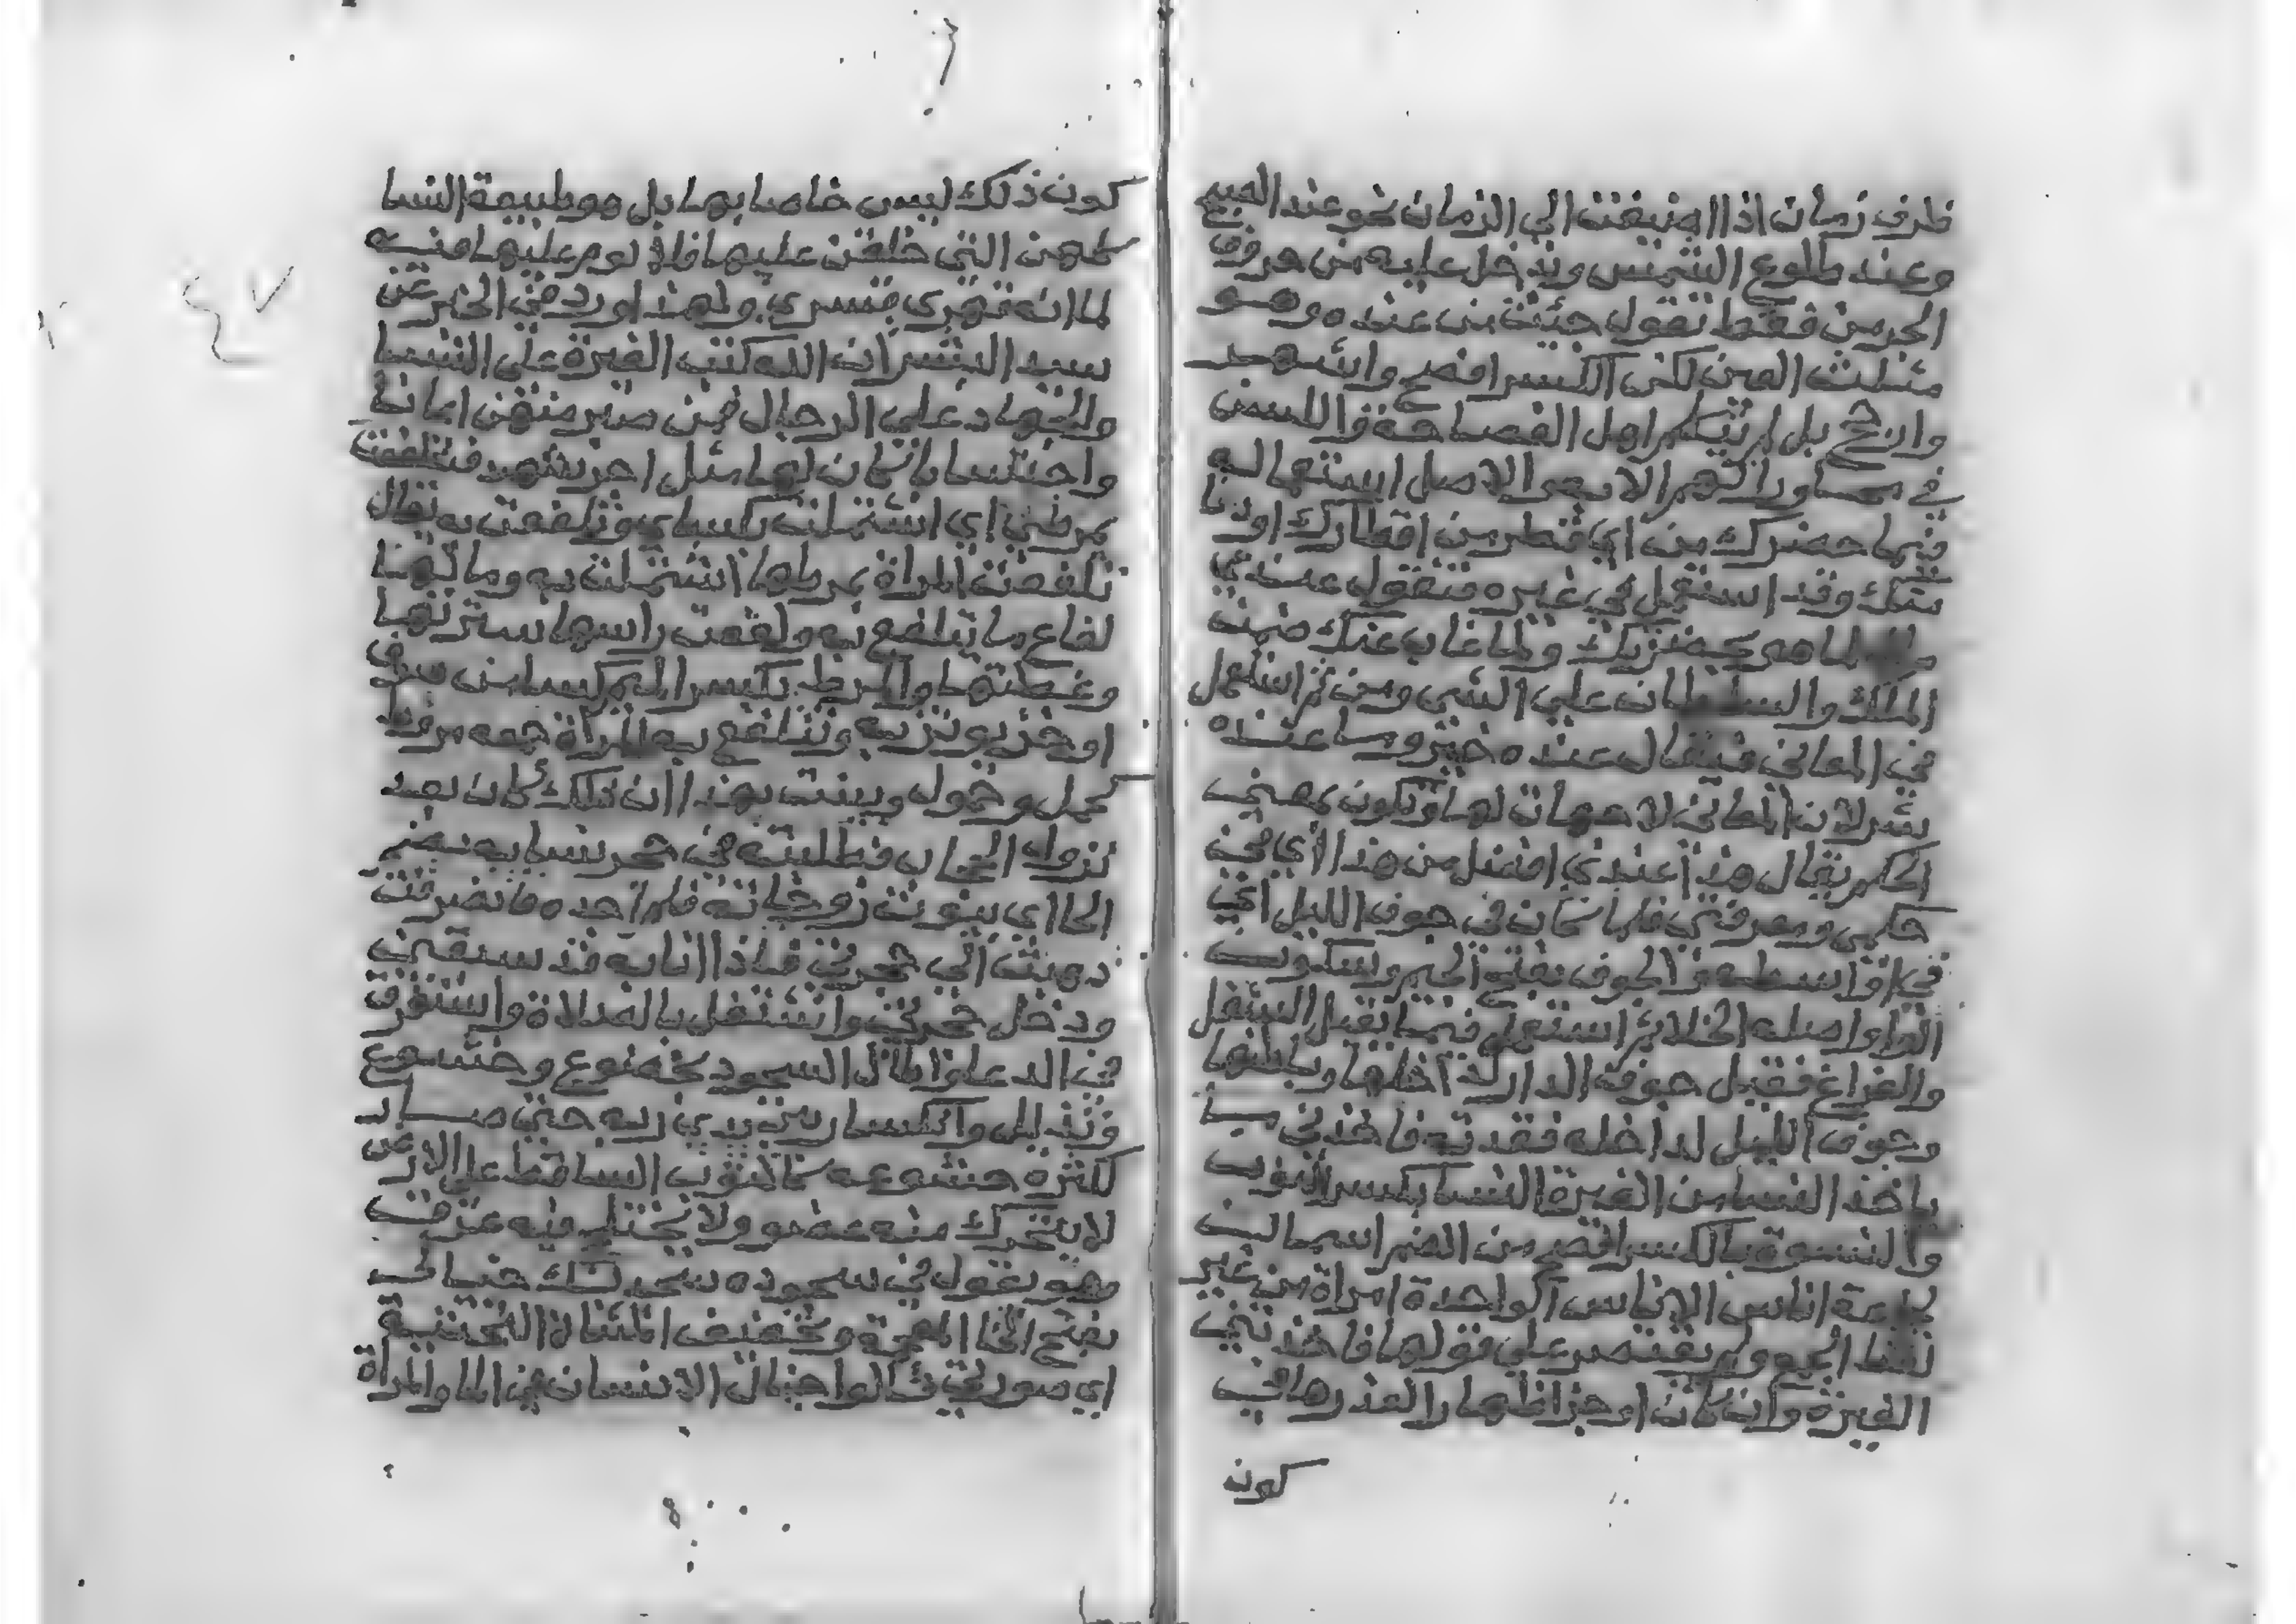 ظرف زمان اذا اضيفت الي الزمان نحو عند الصبح
وعند طلوع الشمس ويدخل عليه من حروف
الجر من فقط تقول جئت من عنده وهو
مثلث العين لكن الكسر افصح واشهر
وارجح بل لم يتكلم اهل الفصاحة واللسن
في محاوراتهم الا به والاصل استعماله
فيما حضرك من اي قطر من اقطارك او دنا
منك وقد استعمل في غيره فتقول عندي
مال لما هو بحضرتك ولما غاب عنك ضمنت
الملك والسلطان علي الشي ومن ثم استعمل
في المعاني فيقال عنده خير وما عنده
شر لان المعاني لا جهات لها وتكون بمعني
الحكم يقال هذا عندي افضل من هذا اي في
حكمي ومعرفتي فلما كان في جوف الليل اي
في اواسطه والجوف بفتح الجيم وسكون
الواو اصله الخلا ثم استعمل فيما يقبل الشغل
والفراغ فقيل جوف الدار لداخلها وباطنها
وجوف الليل لداخله فقدته فاخذني ما
ياخذ النسا من الغيرة النسا بكسر النون
والنسوة بالكسر افصح من الضم اسمان
لجماعة اناس الاناس الواحدة امراة من غير
لفظ الجمع ولم يقتصر علي قولها فاخذتني
الغيرة وان كان اوجز اظهارا لعذرها في
كون
كون ذلك ليس خاصا بها بل هو طبيعة النسا
كلهن التي خلقن عليها فلا لوم عليها فيه
لما انه قهري قسري ولهذا ورد في الخبر عن
سيد البشر ان الله كتب الغيرة علي النسا
والجهاد علي الرجال فمن صبر منهن ايمانا
واحتسابا كان لها مثل اجر شهيد فتلفعت
بمرطي اي اشتملت بكساي وتلفعت به يقال
تلفعت المراة بمرطها اشتملت به وما لها
لفاع ما تتلفع به ولفعت راسها سترتها
وغطتها والمرط بكسر الميم كسا من صوف
او خز يوتزر به وتتلفع به المراة جمعه مروط
كحمل وحمول وبينت بهذا ان ذلك كان بعد
نزول الحجاب فطلبته في حجر نسايه بضم
الحا اي بيوت زوجاته فلم اجده فانصرفت
ذهبت الي حجرتي فاذا انا به قد سبقني
ودخل حجرتي واشتغل بالصلاة واستغرق
في الدعا واطال السجود بخضوع وخشوع
وتذلل وانكسار بين يدي ربه حتي صار
لكثرة خشوعه كالثوب الساقط علي الارض
لا يتحرك منه عضو ولا يختلج فيه عرق
وهو يقول في سجوده سجد لك خيالي
بفتح الخا المعجمة وتخفيف المثناة التحتية
اي صورتي قالوا خيال الانسان في الما والمراة